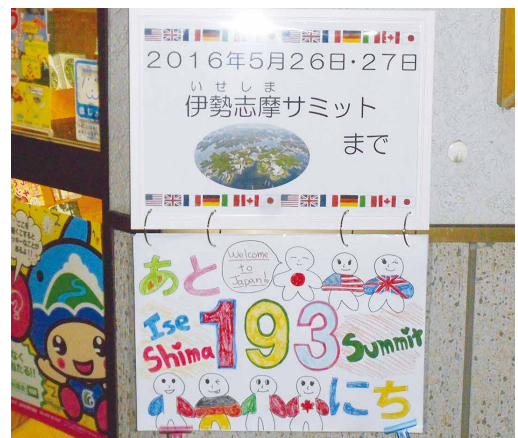 2016年5月26日・27日
いせしま
伊勢志摩サミット
まで
あと
Welcome
to
Japan!
Ise
Shima
193
Summit
にち